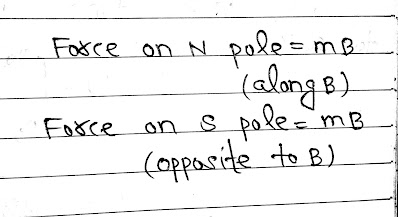 Force on N pole = mB
(along B)
Force on S pole = mB
(opposite to B)